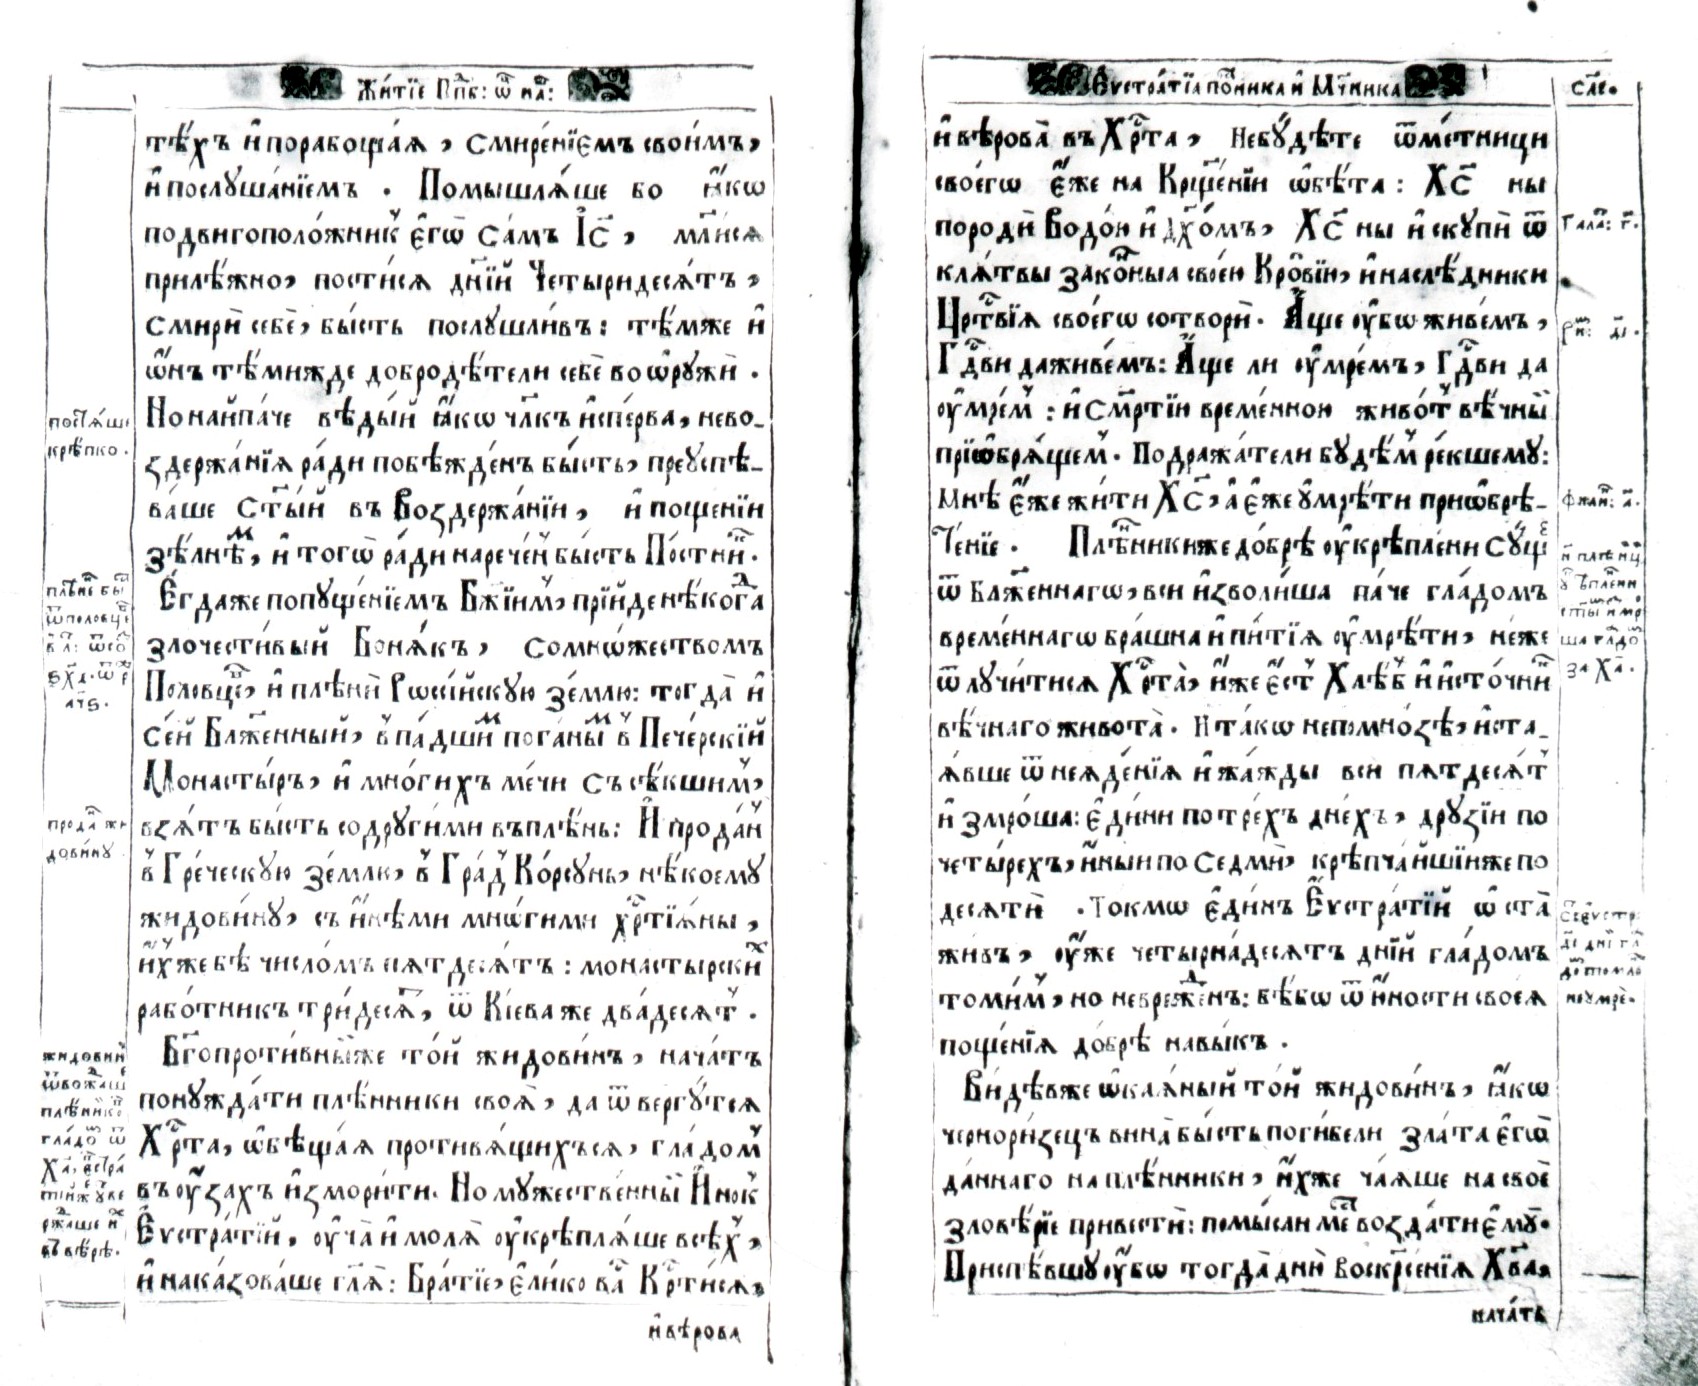 Жи́тїе Прпⷣб: ѿ на҃:
тѣ́хъ и҆ порабоща́ѧ, смире́нїемъ свои́мъ,
и҆ послꙋша́нїемъ. Помышлѧ́ше бо ꙗ҆́кѡ
подвигополо́жникъ є҆гѡ̀ Са́мъ І҆с҃, мл҃ѧсѧ
прилѣ́жно, пости́сѧ дні́й Четыридесѧ́тъ,
смирѝ себѐ, бы́сть послꙋшли́въ: тѣ́мже и҆
ѡ҆́нъ тѣ́мижде добродѣ́тели себѐ воѡрꙋжѝ.
Но наипа́че вѣ́дый ꙗ҆́кѡ чл҃къ и҆спе́рва, нево-
здержа́нїѧ ра́ди побѣжде́нъ бы́сть, преꙋспѣ-
ва́ше Ст҃ы́й въ Воздержа́нїи, и҆ поще́нїи
зѣ́лнѣмъ, и҆ тогѡ̀ ра́ди нарече́нъ бы́сть По́стникъ.
Е҆гдаже попꙋще́нїемъ Бж҃їимъ, прїи́де нѣ́когда
злочести́вый Боня́къ, со мнѡ́жествомъ
Половцъ, и҆ плѣнѝ Рѡссі́йскꙋю зе́млю: тогда̀ и҆
се́й Бл҃же́нный, впа́дшимъ пога́нымъ в Пече́рскїй
Монасты́ръ, и҆ мно́гихъ мечи́ съсѣ́кшимъ,
взѧ́тъ бы́сть со дрꙋги́ми въ плѣ́нь: И҆ про́данъ
в Гре́ческꙋю зе́млю, в Гра́дъ Ко́рсꙋнь, нѣ́коемꙋ
жидови́нꙋ, съ и҆нѣ́ми мнѡ́гими хрⷭ҇тїѧ́ны,
и҆́хже бѣ̀ число́мъ пѧтдесѧ́тъ: монасты́рскихъ
рабо́тникъ три́десѧтъ, ѿ Кі́ева же два́десѧтъ.
Бг҃опроти́вныйже то́й жидови́нъ, нача́тъ
понꙋжда́ти плѣ́нники своѧ̀, да ѿве́ргꙋтсѧ
Хрⷭ҇та, ѡ҆бѣща́ѧ противѧ́щихъсѧ, гла́домъ
въ ꙋ҆́захъ и҆змори́ти. Но мꙋ́жественный И҆́нокъ
Е҆ѵстра́тїй, ꙋ҆ча̀ и҆ молѧ̀ ꙋ҆крѣплѧ́ше всѣ́хъ,
и҆ наказова́ше гл҃ѧ: Бра́тїе, є҆ли́ко васъ Крⷭ҇ти́сѧ,
и҆ вѣ́рова
постѧ́ши
крѣ́пко.
плѣне́нъ бы́
ѿ половце
҂аѱ҃ѕ.
про́данъ жи
дови́нꙋ.
жидови́нъ
плѣ́нникѡ
гла́до ѿ
ржаше и҆
въ вѣ́рѣ.
Е҆ѵстра́тїа по́стника и҆ Мч҃ника
Сло.
и҆ вѣ́рова въ Хрⷭ҇та, Не бꙋ́дѣте ѿме́тници
своегѡ̀ є҆́же на Крще́нїи ѡ҆бѣ́та: Хс҃ ны
породѝ Водо́ю и҆ дх҃омъ, Хс҃ ны и҆скꙋпѝ ѿ
клѧ́твы зако́нныѧ своею̀ Кро́вїю, и҆ наслѣ́дники
Црⷭ҇твїѧ своегѡ̀ сотворѝ. А҆́ще ꙋ҆́бѡ живе́мъ,
Гдⷭ҇ви да живе́мъ: А҆́ще ли ꙋ҆мре́мъ, Гдⷭ҇ви да
ꙋ҆мре́мъ: и҆ См҃ртїю вре́менною живо́тъ вѣ́чный
прїѡбрѧ́щемъ. Подража́тели бꙋ́дѣмъ ре́кшемꙋ:
Мнѣ̀ є҆́же жи́ти Хс҃, а҆ є҆́же ꙋ҆мрѣ́ти приѡбрѣ-
те́нїе. Плѣ́нникиже до́брѣ ꙋ҆крѣпле́ни сꙋ́ще
ѿ Блаже́ннагѡ, вси̑ и҆зво́лиша па́че гла́домъ
вре́меннагѡ бра́шна и҆ пи́тїѧ ꙋ҆мрѣ́ти, не́же
ѿлꙋчи́тисѧ Хрⷭ҇та̀, и҆́же є҆́стъ Хлѣ́бъ и҆ и҆сто́чникъ
вѣ́чнаго живота̀. И та́кѡ непомно́зѣ, и҆ста-
ѧ́вше ѿ неѧде́нїѧ и҆ жа́жды вси̑ пѧтдесѧ́тъ
и҆ змро́ша: є҆ди́ни по тре́хъ дне́хъ, дрꙋ́зїи по
четы́рехъ, и҆́ныи по Седмѝ, крѣпча́йшїиже по
десѧтѝ. Токмѡ є҆ди́нъ Е҆ѵстра́тїй ѡ҆ста̀
жи́въ, ꙋ҆́же четырна́десѧтъ дні́й гла́домъ
томи́мъ, но невреждѐнъ: вѣ́бѡ ѿ ю҆́ности своеѧ̀
поще́нїѧ до́брѣ навы́къ.
Ви́дѣвже ѡ҆каѧ́нный то́й жидови́нъ, ꙗ҆́кѡ
черно­ри́зецъ вина̀ бы́сть поги́бели зла́та є҆гѡ̀
да́ннаго на плѣ́нники, и҆́хже ча́ѧше на своѐ
зловѣ́рїе привестѝ: помы́сли месть возда́ти є҆мꙋ̀.
Приспѣ́вшꙋ ꙋ҆́бѡ тогда̀ дню̀ Воскрⷭ҇е́нїѧ Хв҃а,
нача́тъ
Гала: г҃.
ри̑м: д҃і.
Филип: а҃.
и҆ плѣни́ц
ша гла́до
за Хⷭ҇а.
Ст҃. Е҆ѵстр:
д҃і дні́й гл
до томло
неꙋмрѐ.